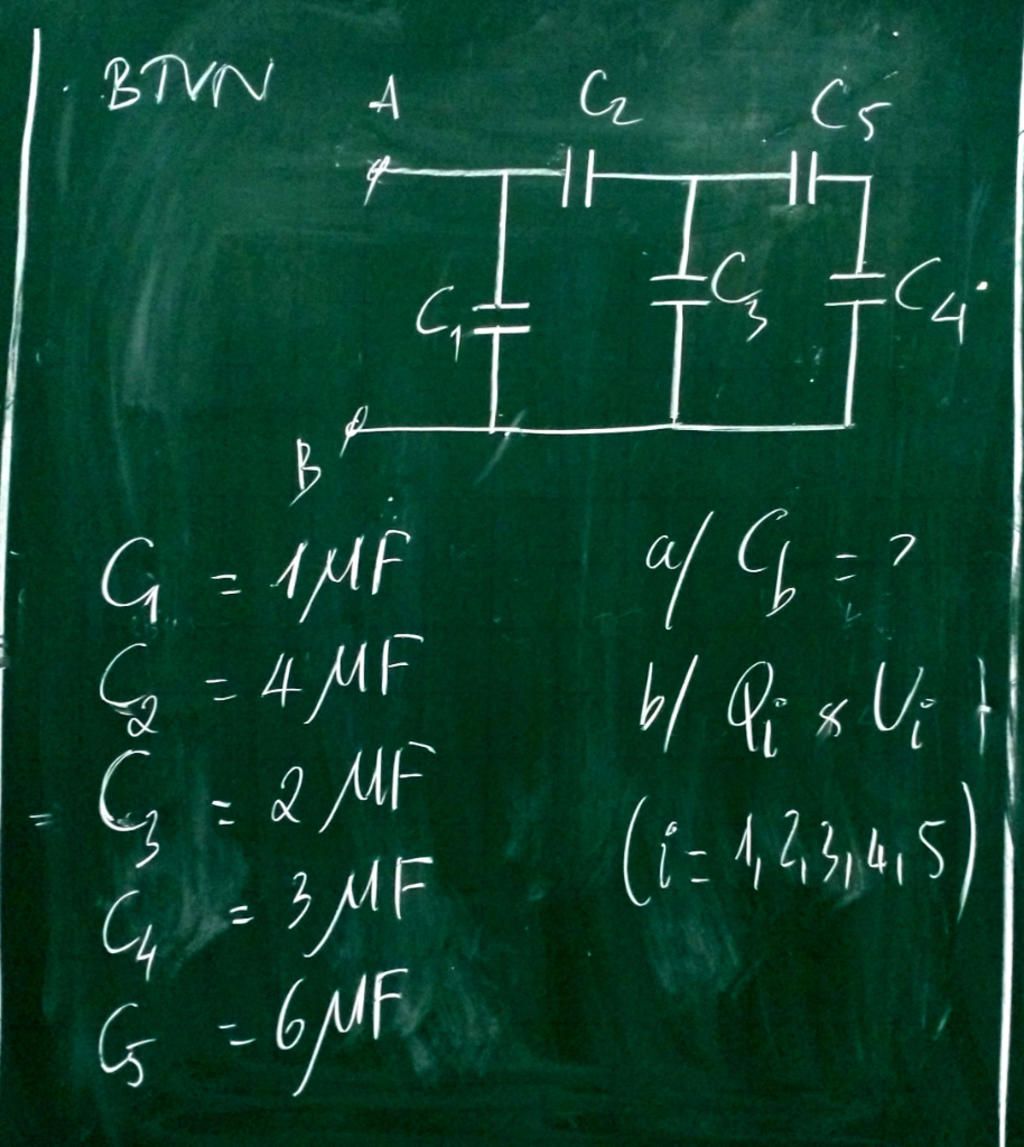 BTVN
A
C2
C5
C1
C3
C4
B
C1 = 1μF
C2 = 4μF
C3 = 2μF
C4 = 3μF
C5 = 6μF
a/ Cb = ?
b/ Qi & Ui
(i = 1, 2, 3, 4, 5)